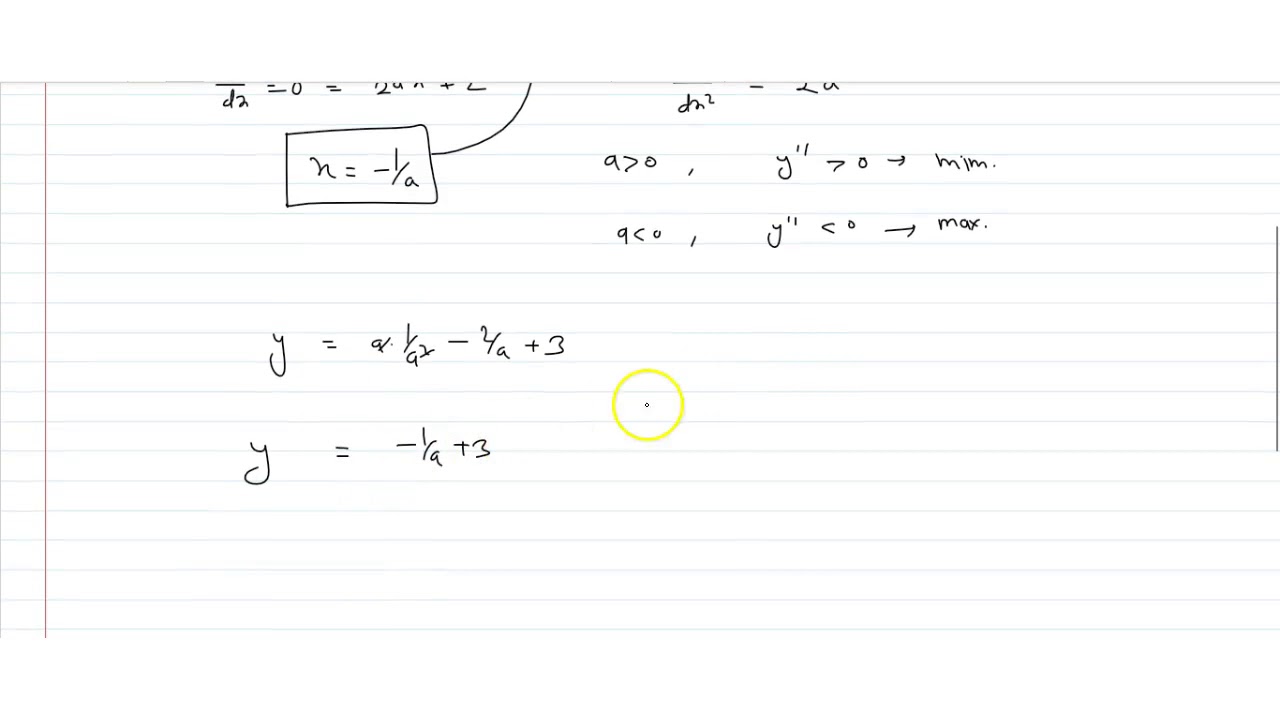 dx = 0 = 2ax + 2
dx² = 2a
x = -1/a
a > 0 , y'' > 0 → min.
a < 0 , y'' < 0 → max.
y = a · 1/a² - 2/a + 3
y = -1/a + 3